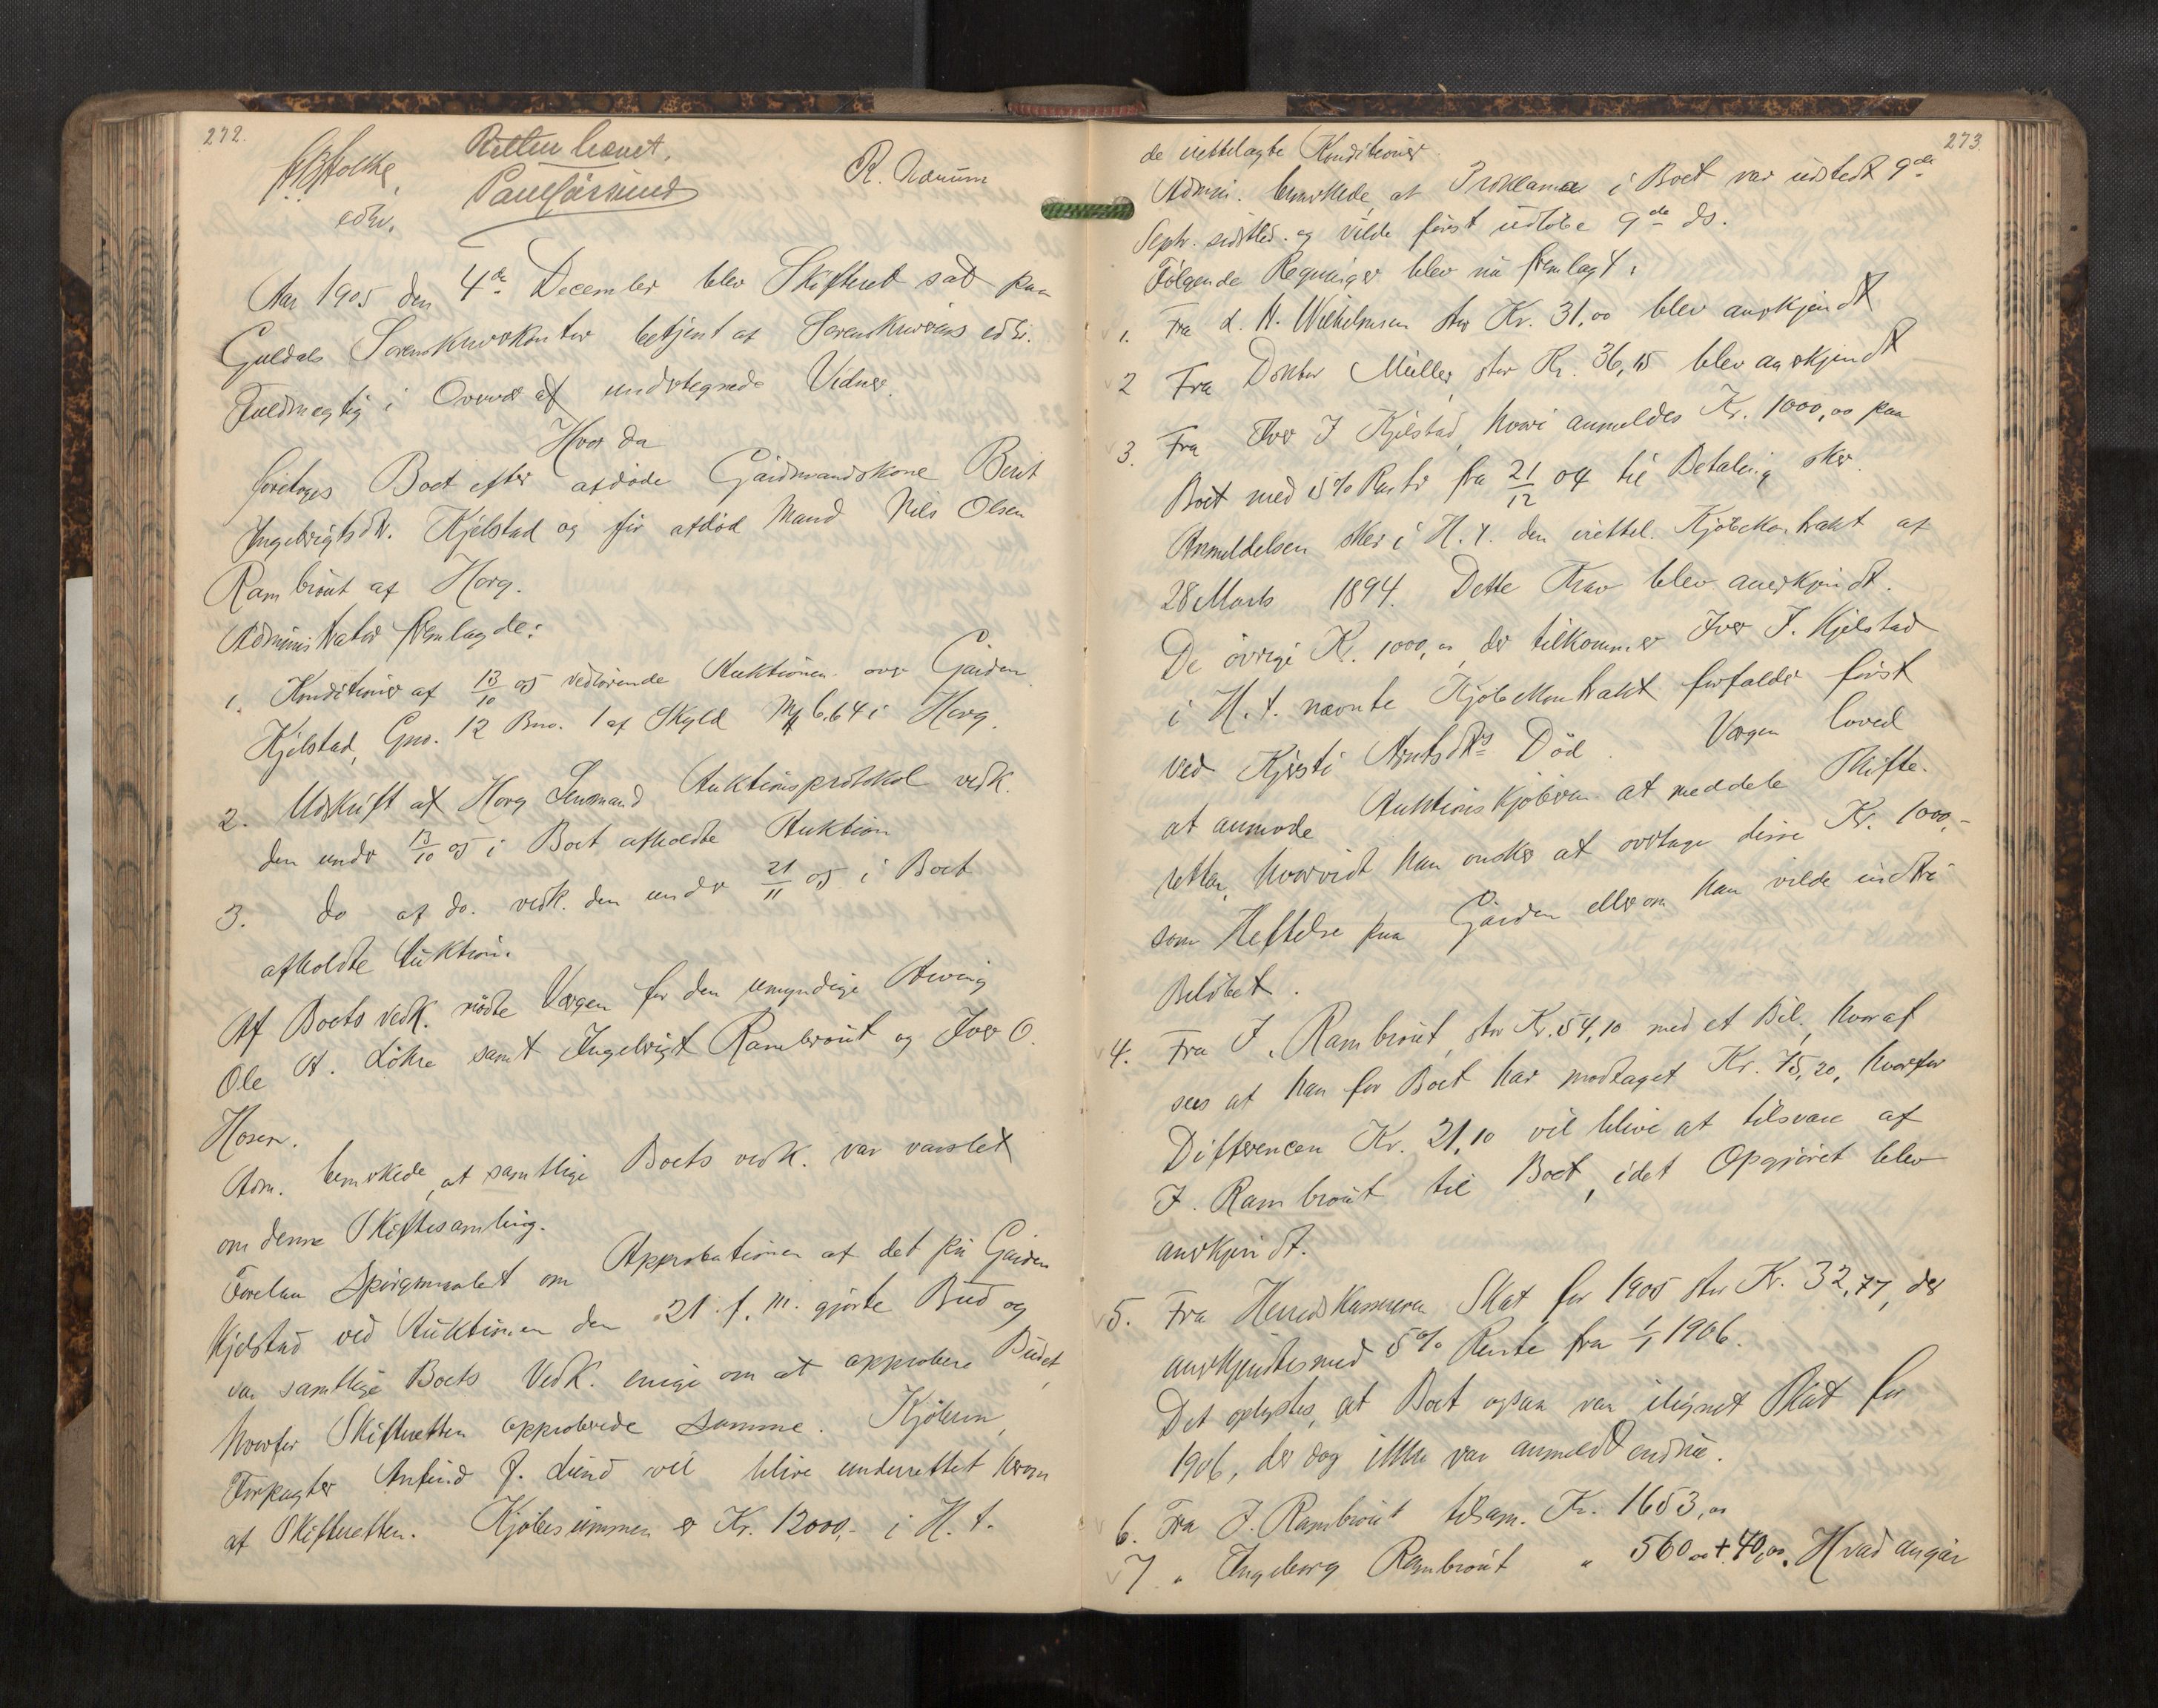 272.
Retten hævet.
Paul
R. Nærum
edsv.
Aar 1905 den 4de December blev Skifteret sat paa
Guldals Sorenskriverkontor betjent af Sorenskriverens edsv.
Fuldmægtig i Overvær af undertegnede Vidner.
Hvor da
foretoges Boet efter afdøde Gaardmandskone Berit
Ingebrigtsdtr. Kjelstad og før afdød Mand Nils Olsen
Rambraut af Horg.
Administrator fremlagde:
1. Konditioner af 13/10 05 vedrørende Auktionen over Gaarden
Kjelstad, Gno. 12 Bno. 1 af Skyld Mk 6.64 i Horg.
2. Udskrift af Horg Lensmand Auktionsprotokol vedk.
den under 13/10 05 i Boet afholdte Auktion
3. do af do. vedk. den under 21/11 05 i Boet
afholdte Auktion.
Af Boets vedk. mødte Værgen for den umyndige Arving
Ole A. Løkke samt Ingebrigt Rambraut og Iver O.
Hosen.
Adm. bemerkede, at samtlige Boets vedk. var varslet
om denne Skiftesamling.
Forelaa Spørgsmaalet om Approbationen af det paa Gaarden
Kjelstad ved Auktionen den 21 f. m. gjorte Bud og
var samtlige Boets Vedk. enige om at approbere Budet,
hvorfor Skifteretten approberede samme. Kjøberen,
Forpagter Anfind J. Lund vil blive underrettet herom
af Skifteretten. Kjøbesummen er Kr. 12000,- i H. t.
273.
de irettelagte Konditioner.
Admin. bemerkede, at Proklama i Boet var udstedt 9de
Septr. sidstled. og vilde først udløbe 9de ds.
Følgende Regninger blev nu fremlagt:
1. Fra L. A. Wilhelmsen stor Kr. 31,00 blev anerkjendt
2 Fra Doktor Müller, stor Kr. 36,15 blev anerkjendt
3. Fra Iver I Kjelstad, hvori anmeldes Kr. 1000,00 paa
Boet med 5% Rente fra 21/12 04 til Betaling sker.
Anmeldelsen sker i H. t. den irettel. Kjøbekontrakt af
28 Marts 1894. Dette Krav blev anerkjendt.
De øvrige Kr. 1000,00, der tilkommer Iver I. Kjelstad
i H. t. nævnte Kjøbekontrakt forfalder først
ved Kjersti Arntsdtrs Død. Værgen loved
at anmode Auktionskjøberen at meddele Skifte-
retten, hvorvidt han ønsker at overtage disse Kr. 1000,-
som Heftelse paa Gaarden eller om han vilde indfri
Beløbet.
4. Fra I. Rambraut, stor Kr. 54,10 med et Bil., hvoraf
sees at han for Boet har modtaget Kr. 75,20, hvorfor
Differencen Kr. 21,10 vil blive at tilsvare af
I. Rambraut til Boet, idet Opgjøret blev
anerkjendt.
5. Fra Herredskasseren Skat for 1905 stor Kr. 32,77, der
anerkjendtes med 5% Rente fra 1/1 1906.
Det oplystes, at Boet ogsaa var ilignet Skat for
1906, der dog ikke var anmeldt endnu.
6. Fra I. Rambraut tilsam. Kr. 1653,00
7 „ Ingeborg Rambraut „ 560,00 + 40,00. Hvad angaar